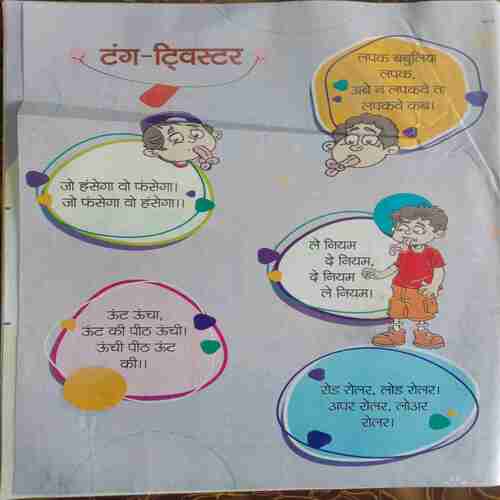 टंग-ट्विस्टर
लपक बबुलिया
लपक,
अबे न लपकवे तऽ
लपकवे कब।
जो हंसेगा वो फंसेगा।
जो फंसेगा वो हंसेगा।।
ले नियम
दे नियम,
दे नियम
ले नियम।
ऊंट ऊंचा,
ऊंट की पीठ ऊंची।
ऊंची पीठ ऊंट
की।।
रोड रोलर, लोड रोलर।
अपर रोलर, लोअर
रोलर।